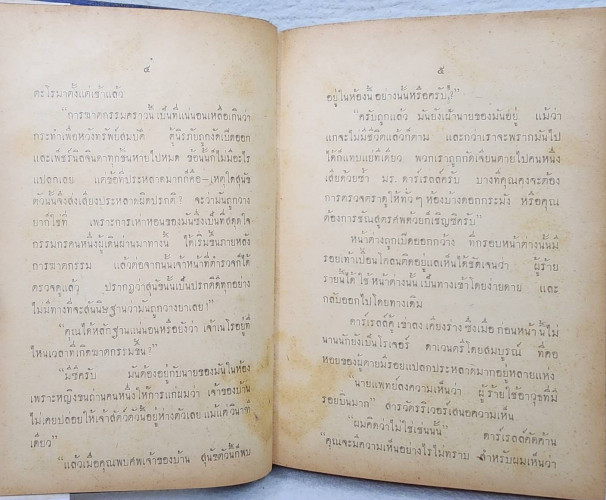 ๔
ตะไรมาตั้งแต่เช้าแล้ว
"การฆาตกรรมคราวนี้ เป็นที่แน่นอนเหลือเกินว่า
กระทำเพื่อหวังทรัพย์สมบัติ ตู้นิรภัยถูกงัดเปิดออก
และเพ็ชร์นิลจินดาทุกชิ้นหายไปหมด ข้อนั้นก็ไม่มีอะไร
แปลกเลย แต่ข้อที่ประหลาดมากก็คือ—เหตุใดสุนัข
ตัวนั้นจึงส่งเสียงประหลาดผิดปรกติ? จะว่ามันถูกวาง
ยาก็ใช่ที่ เพราะการเห่าหอนของมันซึ่งเป็นที่สดุดใจ
กรรมกรคนหนึ่งผู้เดินผ่านมาทางนั้น ได้เริ่มขึ้นภายหลัง
การฆาตกรรม แล้วต่อจากนั้นเจ้าหน้าที่ตำรวจก็ได้
ตรวจดูแล้ว ปรากฏว่าสุนัขนั้นเป็นปรกติดีทุกอย่าง
ไม่มีทางที่จะสันนิษฐานว่ามันถูกวางยาเลย!"
"คุณได้หลักฐานแน่นอนหรือยังว่า เจ้าเนโรอยู่ที่
ไหนเวลาที่เกิดฆาตกรรมขึ้น?"
"มีซิครับ มันต้องอยู่กับนายของมันในห้อง
เพราะหญิงชนถ่านคนหนึ่งให้การแก่ผมว่า เจ้าของบ้าน
ไม่เคยปล่อยให้เจ้าสัตว์ตัวนั้นอยู่ห่างตัวเลย แม้แต่วินาที
เดียว"
"แล้วเมื่อคุณพบศพเจ้าของบ้าน สุนัขตัวนั้นก็พบ
๕
อยู่ในห้องนั้นอย่างนั้นหรือครับ?"
"ครับถูกแล้ว มันยังเฝ้านายของมันอยู่ แม้ว่า
แกจะไม่มีชีวิตแล้วก็ตาม และกว่าเราจะพรากมันไป
ได้ก็แทบแย่ทีเดียว พวกเราถูกกัดเจียนตายไปคนหนึ่ง
เสียด้วยซ้ำ มร. ดาร์เรลล์ครับ บางทีคุณคงจะต้อง
การตรวจตราดูให้ทั่วๆ ห้องบ้างดอกกระมัง หรือคุณ
ต้องการชัณสูตรศพด้วยก็เชิญซิครับ"
หน้าต่างถูกเปิดออกกว้าง ที่กรอบหน้าต่างนั้นมี
รอยเท้าเปื้อนโคลนติดอยู่แลเห็นได้ชัดเจนว่า ผู้ร้าย
รายนี้ได้ใช้หน้าต่างนั้น เป็นทางเข้าโดยง่ายดาย และ
กลับออกไปโดยทางเดิม
ดาร์เรลล์คู้เข่าลงเคียงร่าง ซึ่งเมื่อก่อนหน้านี้ไม่
นานนักยังเป็นโรเจอร์ ดาเวนตรี่โดยสมบูรณ์ ที่คอ
หอยของผู้ตายมีรอยแปลกประหลาดมากอยู่หลายแห่ง
"นายแพทย์ลงความเห็นว่า ผู้ร้ายใช้อาวุธที่มี
รอยบิ่นมาก" สารวัตรริเวอร์เสนอความเห็น
"ผมคิดว่าไม่ใช่เช่นนั้น" ดาร์เรลล์คัดค้าน
"คุณจะมีความเห็นอย่างไรไม่ทราบ สำหรับผมเห็นว่า